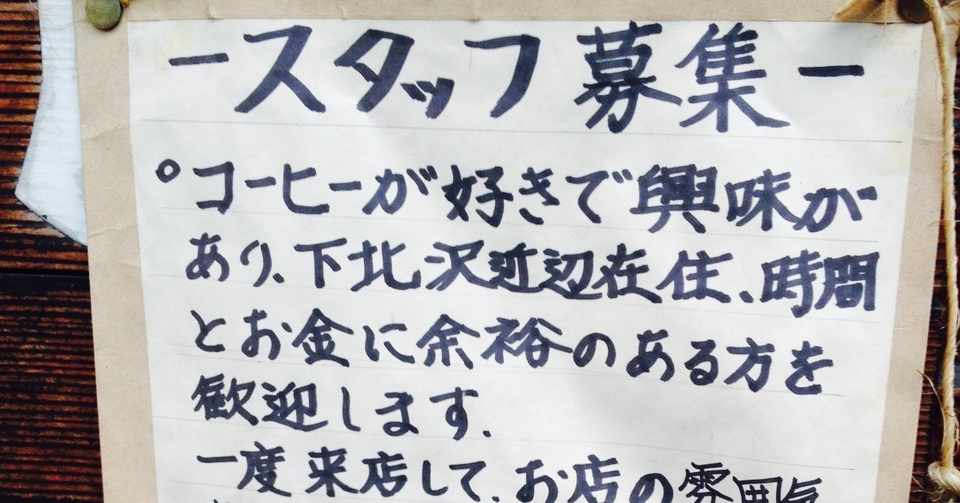 ースタッフ募集ー
°コーヒーが好きで興味が
あり、下北沢近辺在住、時間
とお金に余裕のある方を
歓迎します.
一度来店して、お店の雰囲気